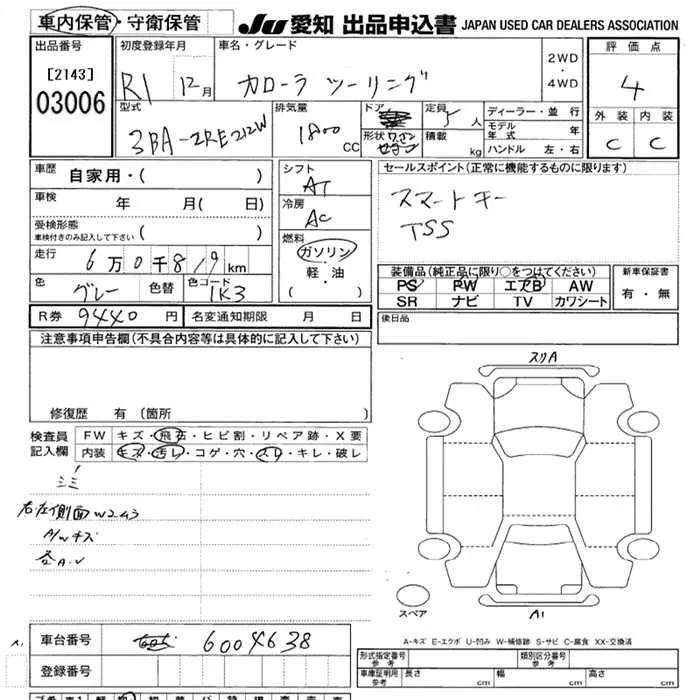 車内保管・守衛保管
JU 愛知 出品申込書 JAPAN USED CAR DEALERS ASSOCIATION
出品番号
[2143]
03006
初度登録年月
R1 12月
車名・グレード
カローラ ツーリング
2WD
・
4WD
評価点
4
外装 内装
C C
型式
3BA-ZRE212W
排気量
1800 cc
ドア
形状 ワゴン
定員
5 人
積載
kg
ディーラー・並行
モデル年式 年
ハンドル 左・右
車歴
自家用・( )
車検
年 月( 日)
受検形態
車検付きのみ記入して下さい
走行 6万0千819km
色 グレー 色替 色コード 1K3
シフト
AT
冷房
AC
燃料
ガソリン
・
軽・油
・
( )
セールスポイント(正常に機能するものに限ります)
スマートキー
TSS
装備品(純正品に限り○をつけてください)
PS PW エアB AW
SR ナビ TV カワシート
新車保証書
有・無
R券 9440円 名変通知期限 月 日
後日品
注意事項申告欄(不具合内容等は具体的に記入して下さい)
修復歴 有(箇所 )
検査員記入欄
FW キズ・飛石・ヒビ割・リペア跡・X要
内装 キズ・汚レ・コゲ・穴・スレ・キレ・破レ
右左側面W2 43
A/Wキズ
各A.U
スリA
スペア
A1
A-キズ E-エクボ U-凹み W-補修跡 S-サビ C-腐食 XX-交換済
車台番号 6004638
登録番号
A1
形式指定番号 参考
類別区分番号 参考
車庫証明用 参考 長さ cm 幅 cm 高さ cm